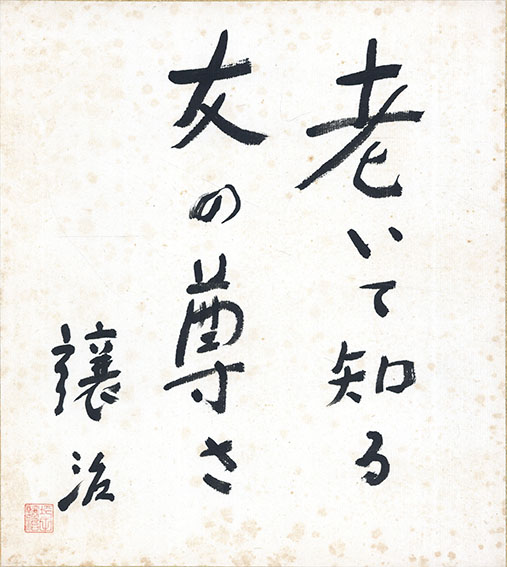 老いて知る
友の尊さ
譲治